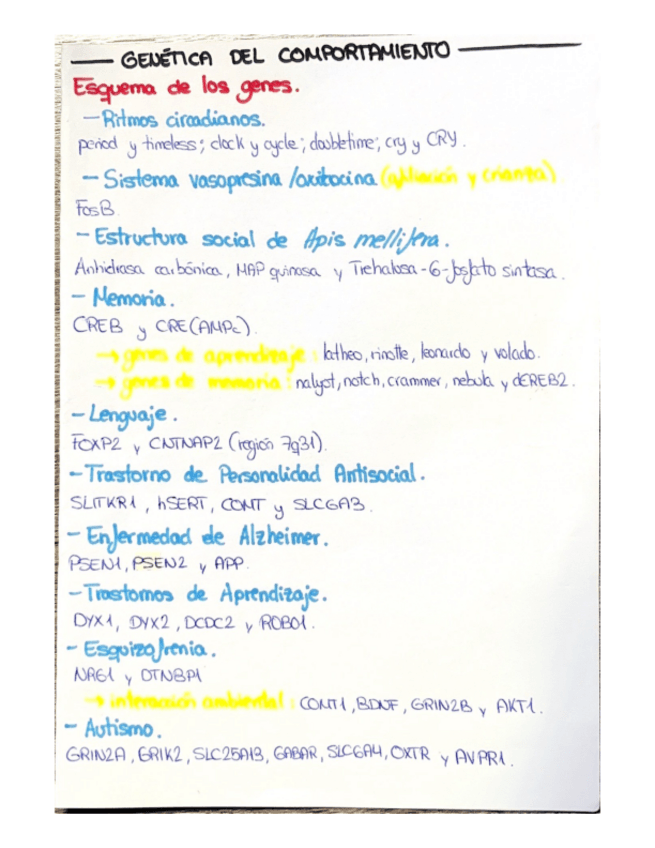 GENÉTICA DEL COMPORTAMIENTO
Esquema de los genes.
- Ritmos circadianos.
period y timeless; clock y cycle; doubletime; cry y CRY.
- Sistema vasopresina/oxitocina (afiliación y crianza)
FosB
- Estructura social de Apis mellifera.
Anhidrasa carbónica, MAP quinasa y Trehalosa-6-fosfato sintasa.
- Memoria.
CREB y CRE(AMPc).
→ genes de aprendizaje: latheo, rinotte, leonardo y volado.
→ genes de memoria: nalyot, notch, crammer, nebula y dCREB2.
- Lenguaje.
FOXP2 y CNTNAP2 (región 7q31).
- Trastorno de Personalidad Antisocial.
SLITKR1, hSERT, COMT y SLC6A3.
- Enfermedad de Alzheimer.
PSEN1, PSEN2 y APP.
- Trastornos de Aprendizaje.
DYX1, DYX2, DCDC2 y ROBO1.
- Esquizofrenia.
NRG1 y DTNBP1
→ interacción ambiental: COMT1, BDNF, GRIN2B y AKT1.
- Autismo.
GRIN2A, GRIK2, SLC25A13, GABAR, SLC6A4, OXTR y AVPR1.